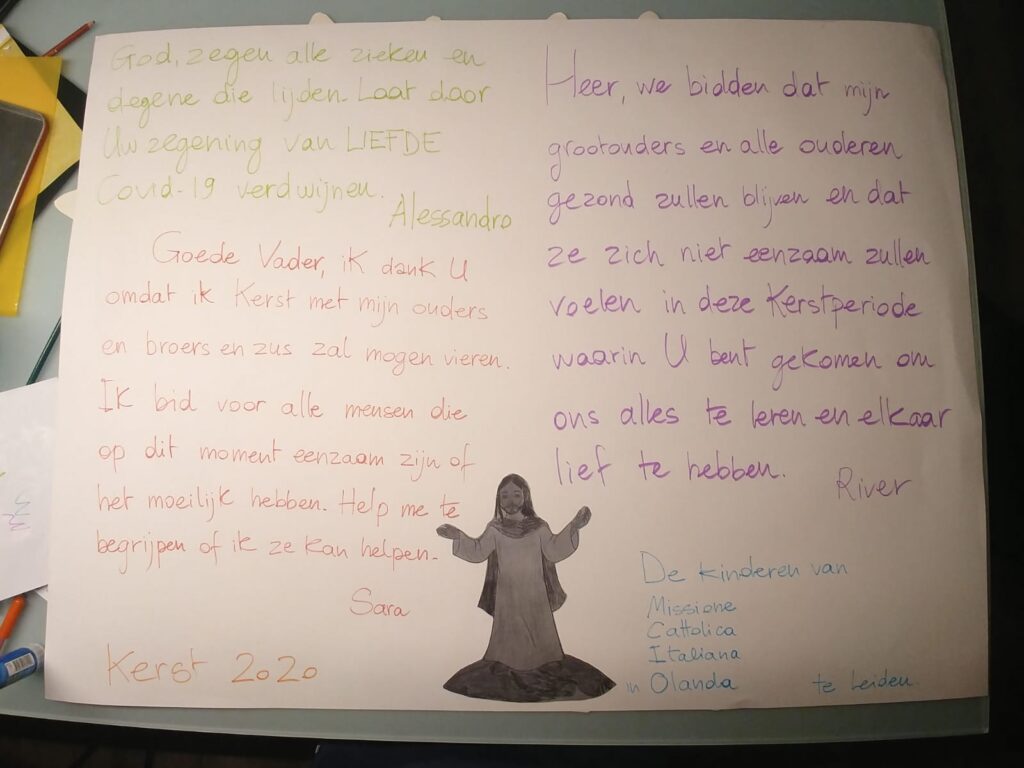 God, zegen alle zieken en
degene die lijden. Laat door
Uw zegening van LIEFDE
Covid-19 verdwijnen.
Alessandro
Goede Vader, ik dank U
omdat ik Kerst met mijn ouders
en broers en zus zal mogen vieren.
Ik bid voor alle mensen die
op dit moment eenzaam zijn of
het moeilijk hebben. Help me te
begrijpen of ik ze kan helpen.
Sara
Kerst 2020
Heer, we bidden dat mijn
grootouders en alle ouderen
gezond zullen blijven en dat
ze zich niet eenzaam zullen
voelen in deze Kerstperiode
waarin U bent gekomen om
ons alles te leren en elkaar
lief te hebben.
River
De kinderen van
Missione
Cattolica
Italiana
in Olanda te Leiden.